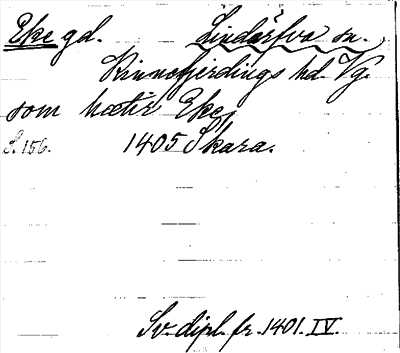 Eke gd. Lindärfva sn.
Kinnefjerdings hd. Vg.
som hætir Eke,
S. 156. 1405 Skara.
Sv. dipl. fr. 1401. IV.